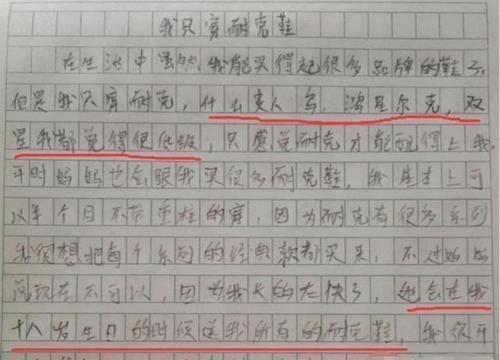 我只穿耐克鞋
在生活中虽然我能买得起很多品牌的鞋子
但是我只穿耐克，什么安人鸟，鸿星尔克，双
星我都觉得很低级，只感觉耐克才能配得上我
平时妈妈也会跟我买很多耐克鞋，我基本上可
以半个月不带重样的穿，因为耐克有很多系列
我很想把每个系列的经典款都买来，不过妈妈
说现在不可以，因为我长的太快了，她会在我
十八岁生日的时候送我所有的耐克鞋，我很开